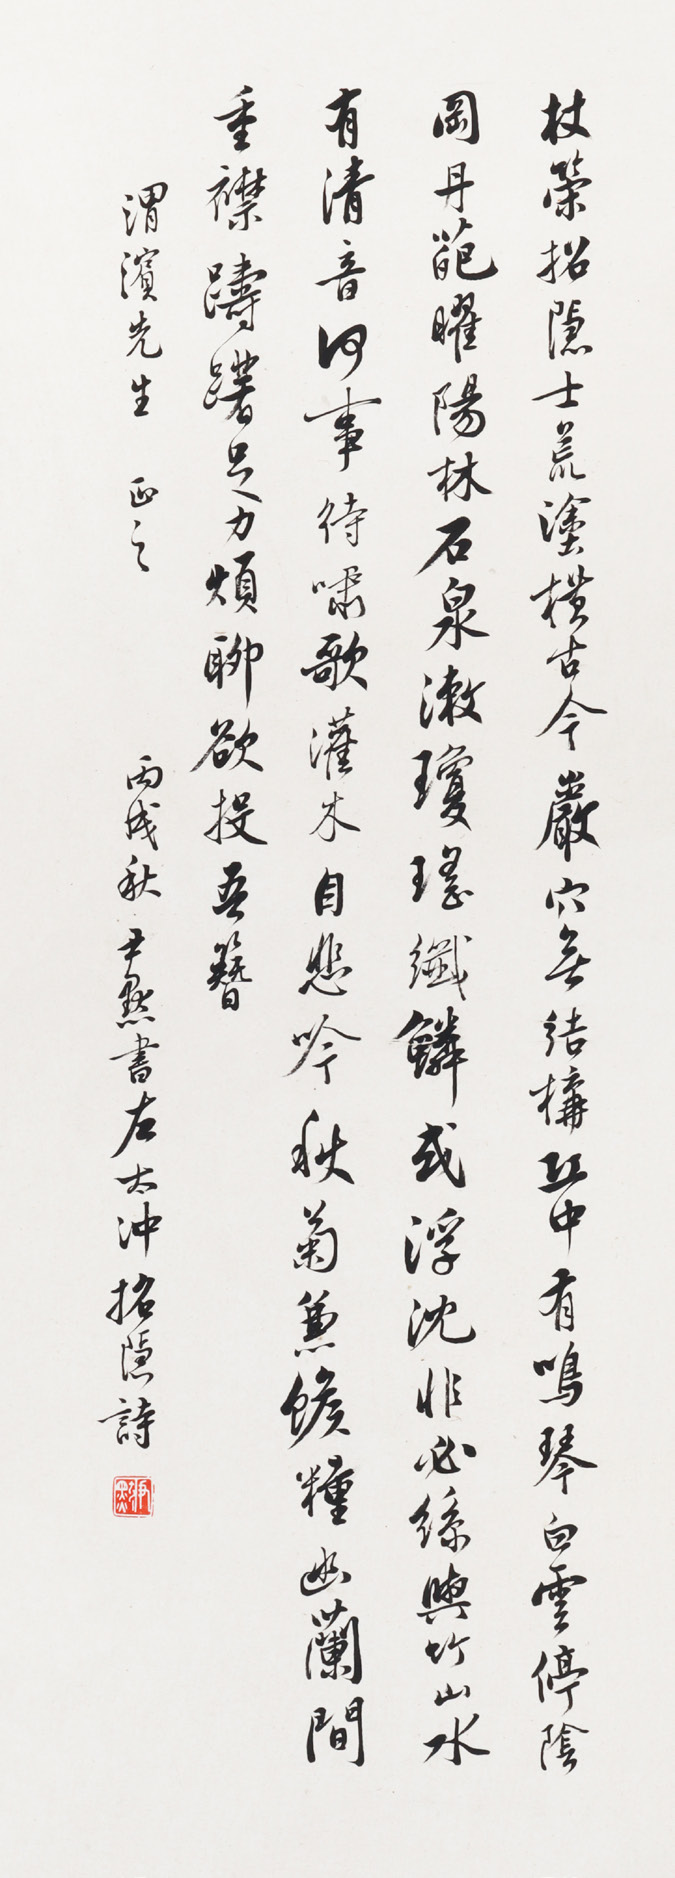 杖策招隱士荒塗橫古今巖穴無結構丘中有鳴琴白雲停陰
岡丹葩曜陽林石泉漱瓊瑤纖鱗或浮沈非必絲與竹山水
有清音何事待嘯歌灌木自悲吟秋菊兼餱糧幽蘭間
重襟躊躇足力煩聊欲投吾簪
渭濱先生 正之
丙戌秋尹默書左太沖招隱詩